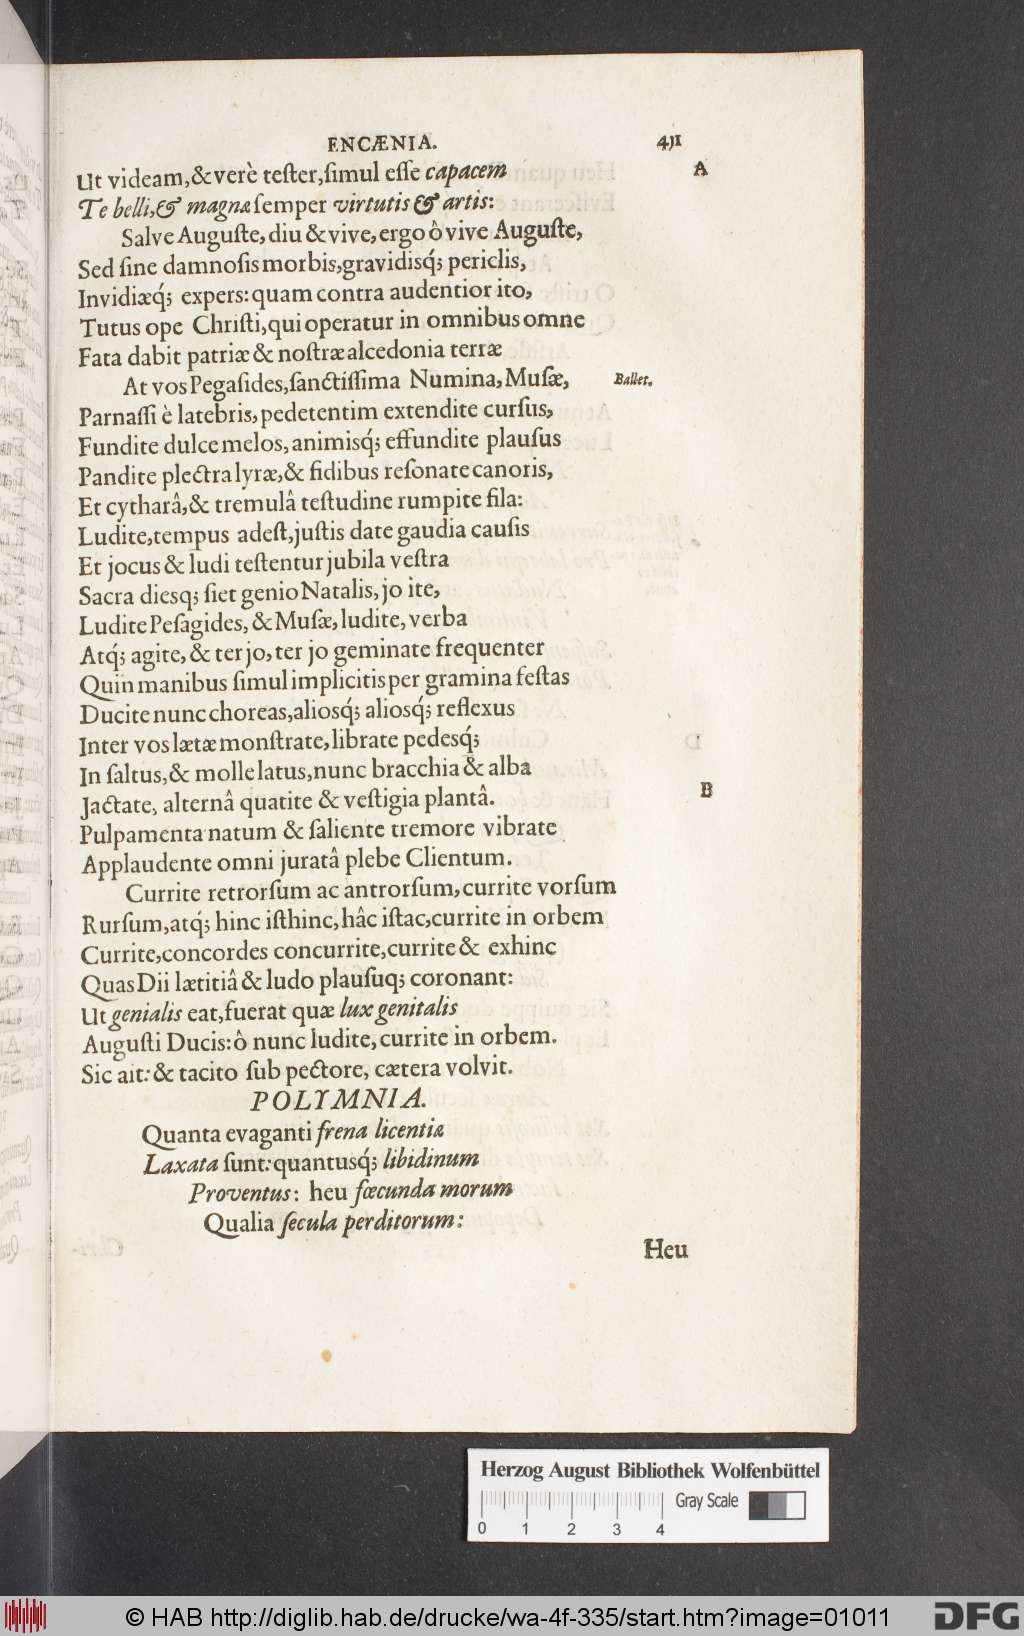 ENCÆNIA. 411
Ut videam,& verè teſter,ſimul eſſe capacem A
Te belli,& magnæ ſemper virtutis & artis:
Salve Auguſte, diu & vive, ergo ô vive Auguſte,
Sed ſine damnoſis morbis,gravidisq́; periclis,
Invidiæq́; expers: quam contra audentior ito,
Tutus ope Chriſti,qui operatur in omnibus omne
Fata dabit patriæ & noſtræ alcedonia terræ
At vos Pegaſides,ſanctiſſima Numina, Muſæ, Ballet.
Parnaſſi è latebris, pedetentim extendite curſus,
Fundite dulce melos, animisq́; effundite plauſus
Pandite plectra lyræ,& fidibus reſonate canoris,
Et cytharâ,& tremulâ teſtudine rumpite fila:
Ludite,tempus adeſt,juſtis date gaudia cauſis
Et jocus & ludi teſtentur jubila veſtra
Sacra diesq; ſiet genio Natalis, jo ite,
Ludite Peſagides, & Muſæ, ludite, verba
Atq́; agite, & ter jo, ter jo geminate frequenter
Quin manibus ſimul implicitis per gramina feſtas
Ducite nunc choreas,aliosq́; aliosq́; reflexus
Inter vos lætæ monſtrate, librate pedesq́;
In ſaltus,& molle latus,nunc bracchia & alba
Jactate, alternâ quatite & veſtigia plantâ. B
Pulpamenta natum & ſaliente tremore vibrate
Applaudente omni juratâ plebe Clientum.
Currite retrorſum ac antrorſum, currite vorſum
Rurſum,atq́; hinc iſthinc, hâc iſtac,currite in orbem
Currite,concordes concurrite,currite & exhinc
Quas Dii lætitiâ & ludo plauſuq; coronant:
Ut genialis eat,fuerat quæ lux genitalis
Auguſti Ducis: ô nunc ludite, currite in orbem.
Sic ait: & tacito ſub pectore, cætera volvit.
POLYMNIA.
Quanta evaganti frena licentiæ
Laxata ſunt: quantusq́; libidinum
Proventus: heu fœcunda morum
Qualia ſecula perditorum:
Heu
Herzog August Bibliothek Wolfenbüttel
Gray Scale
0 1 2 3 4
© HAB http://diglib.hab.de/drucke/wa-4f-335/start.htm?image=01011 DFG